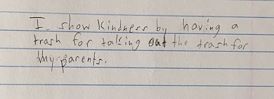 I show kindness by having a
trash for taking out the trash for
my parents.